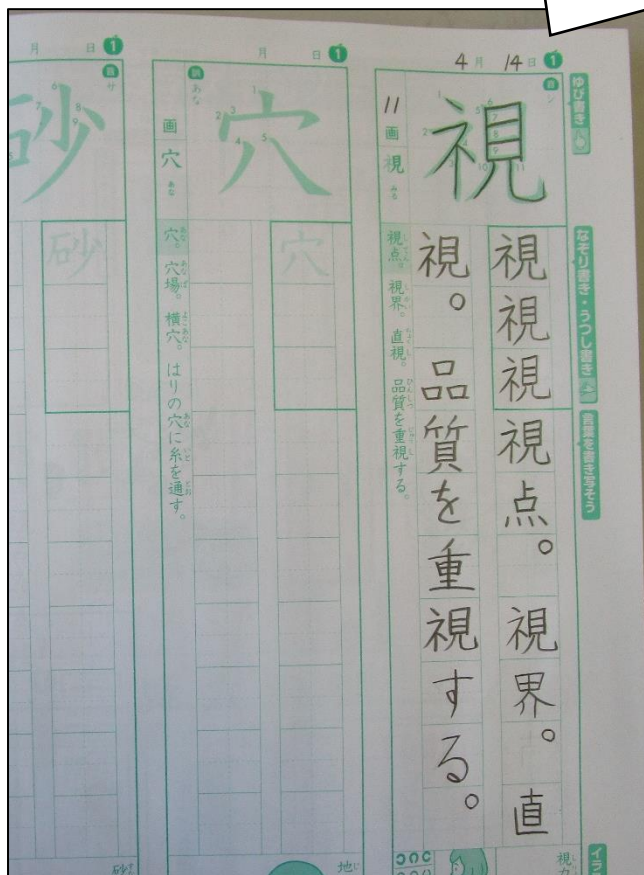 4月 14日 1
ゆび書き
なぞり書き・うつし書き
言葉を書き写そう
音 シ
視
11画 視 みる
視点。視界。直視。品質を重視する。
視視視視点。視界。直
視。品質を重視する。
視力
月 日 1
訓 あな
穴
画 穴 あな
穴。穴場。横穴。はりの穴に糸を通す。
穴
地
月 日 1
音 サ
砂
砂
砂